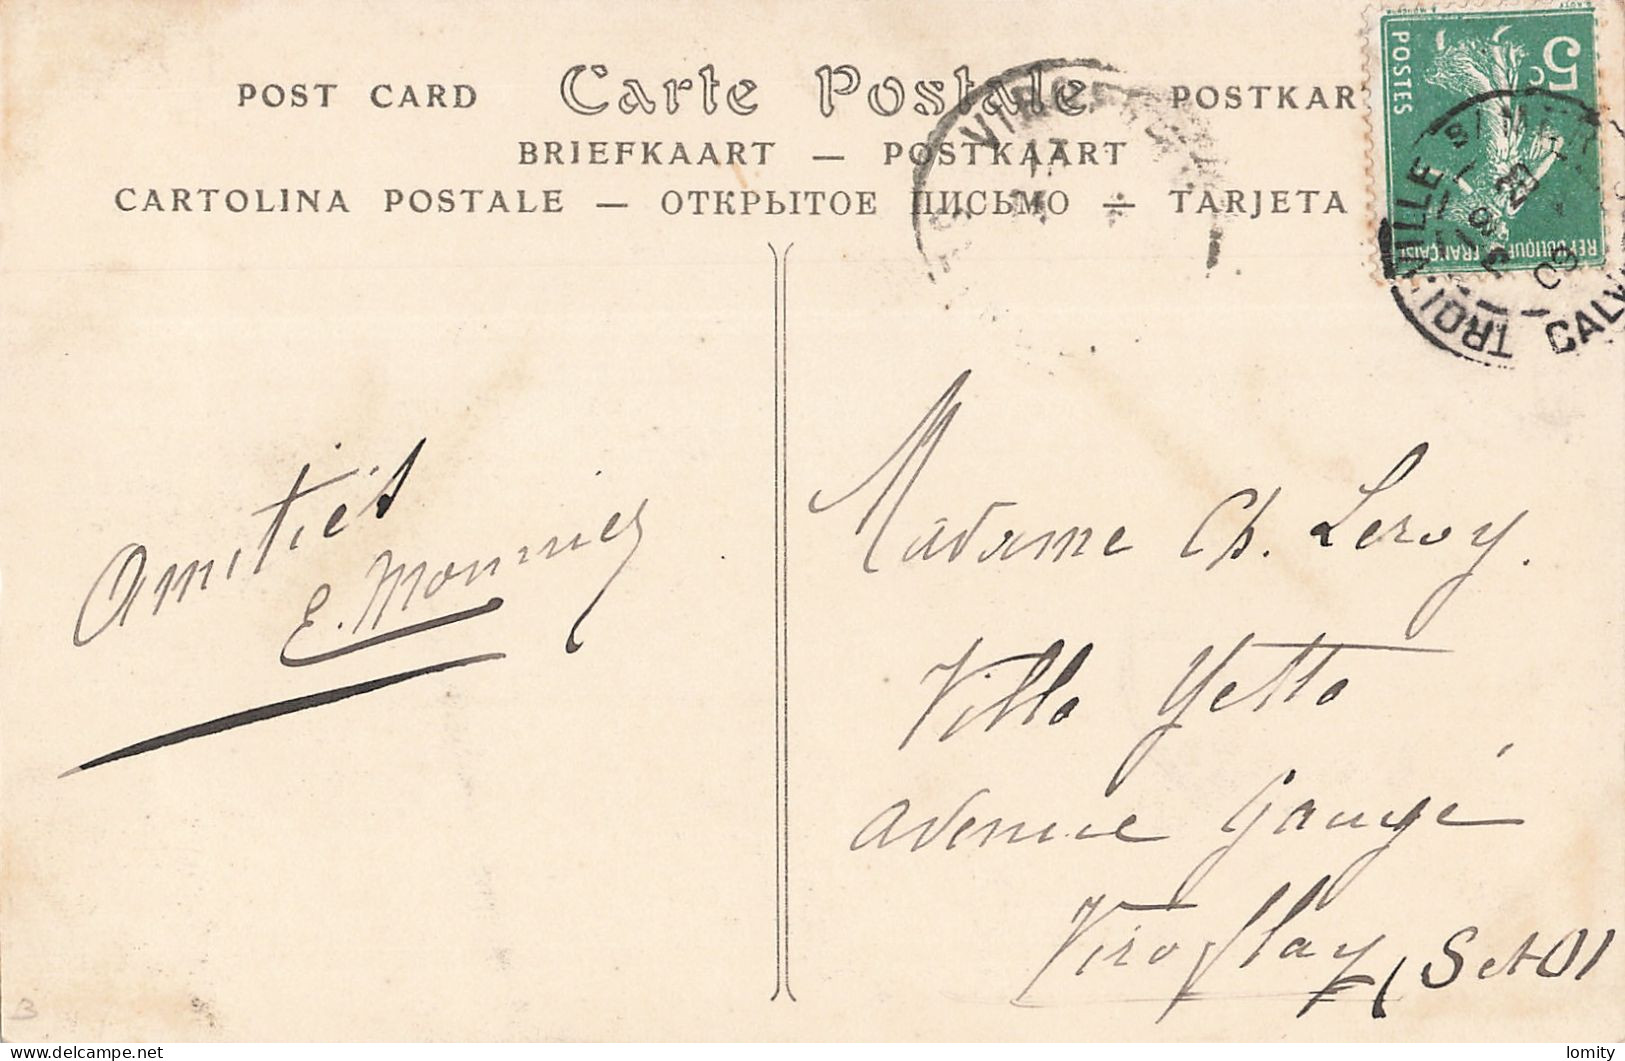 POST CARD Carte Postale POSTKAR
BRIEFKAART — POSTKAART
CARTOLINA POSTALE — ОТКРЫТОЕ ПИСЬМО — TARJETA
5c
POSTES
REPUBLIQUE FRANÇAISE
VILLE S/ MER
CALV
VIRO
Amitiés
E. Monnier
Madame Ch. Leroy.
Villa Yetta
Avenue Gaugé
Viroflay (S et O)
B
delcampe.net
lomity